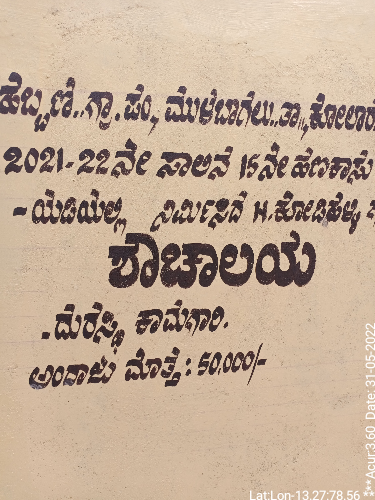 ಹೆಬ್ಬಣಿ.. ಗ್ರಾ. ಪಂ, ಮುಳಬಾಗಿಲು.. ತಾ|| ಕೋಲಾರ
2021-22ನೇ ಸಾಲಿನ 15ನೇ ಹಣಕಾಸು
-ಯೆಡಿಯಲ್ಲಿ ನಿರ್ಮಿಸಿದ ಗ.ಕೋಡಿಹಳ್ಳಿ
ಶೌಚಾಲಯ
.ದುರಸ್ಥಿ ಕಾಮಗಾರಿ.
ಅಂದಾಜು ಮೊತ್ತ: 50,000/-
Lat:Lon-13.27:78.56
***Acur:3.60 Date: 31-05-2022